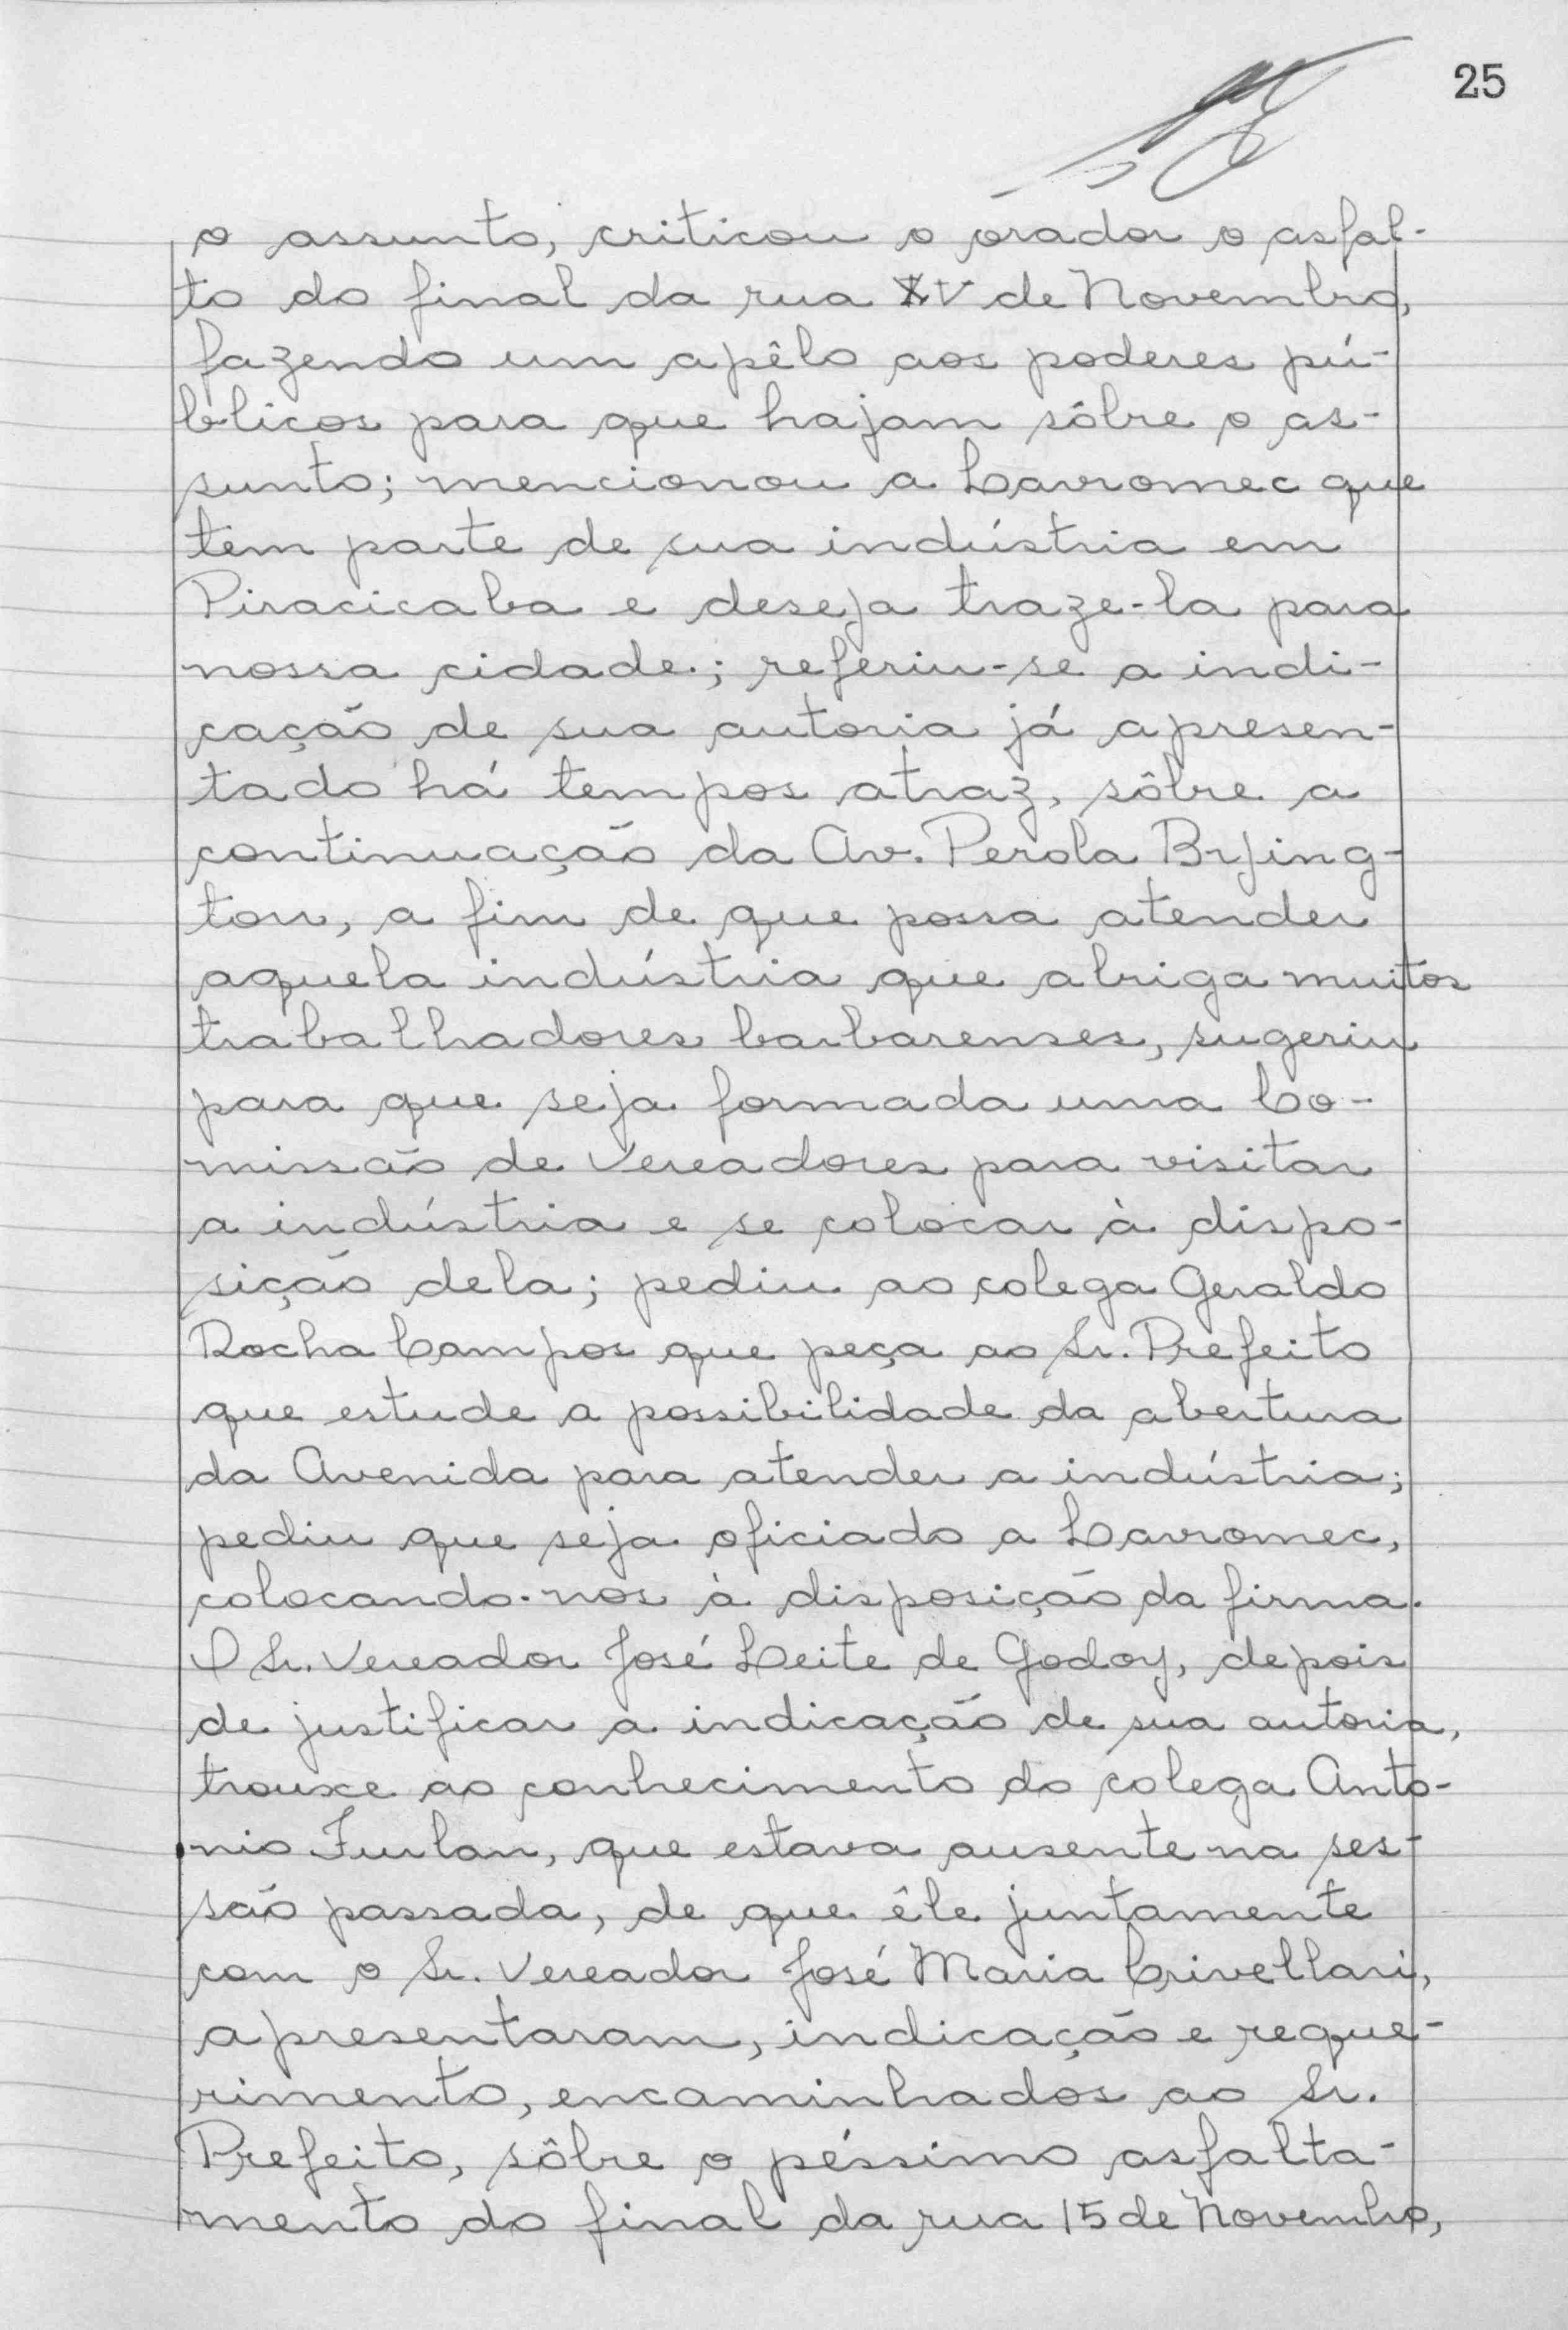 25
o assunto, criticou o orador o asfal-
to do final da rua XV de Novembro,
fazendo um apêlo aos poderes pú-
blicos para que hajam sôbre o as-
sunto; mencionou a Lavromec que
tem parte de sua indústria em
Piracicaba e deseja traze-la para
nossa cidade; referiu-se a indi-
cação de sua autoria já apresen-
tado há tempos atraz, sôbre a
continuação da Av. Perola Bying-
ton, a fim de que possa atender
aquela indústria que abriga muitos
trabalhadores barbarenses, sugeriu
para que seja formada uma Co-
missão de Vereadores para visitar
a indústria e se colocar à dispo-
sição dela; pediu ao colega Geraldo
Rocha Campos que peça ao Sr. Prefeito
que estude a possibilidade da abertura
da Avenida para atender a indústria;
pediu que seja oficiado a Lavromec,
colocando-nos à disposição da firma.
O Sr. Vereador José Leite de Godoy, depois
de justificar a indicação de sua autoria,
trouxe ao conhecimento do colega Anto-
nio Furlan, que estava ausente na ses-
são passada, de que êle juntamente
com o Sr. Vereador José Maria Crivellari,
apresentaram, indicação e reque-
rimento, encaminhados ao Sr.
Prefeito, sôbre o péssimo asfalta-
mento do final da rua 15 de Novembro,